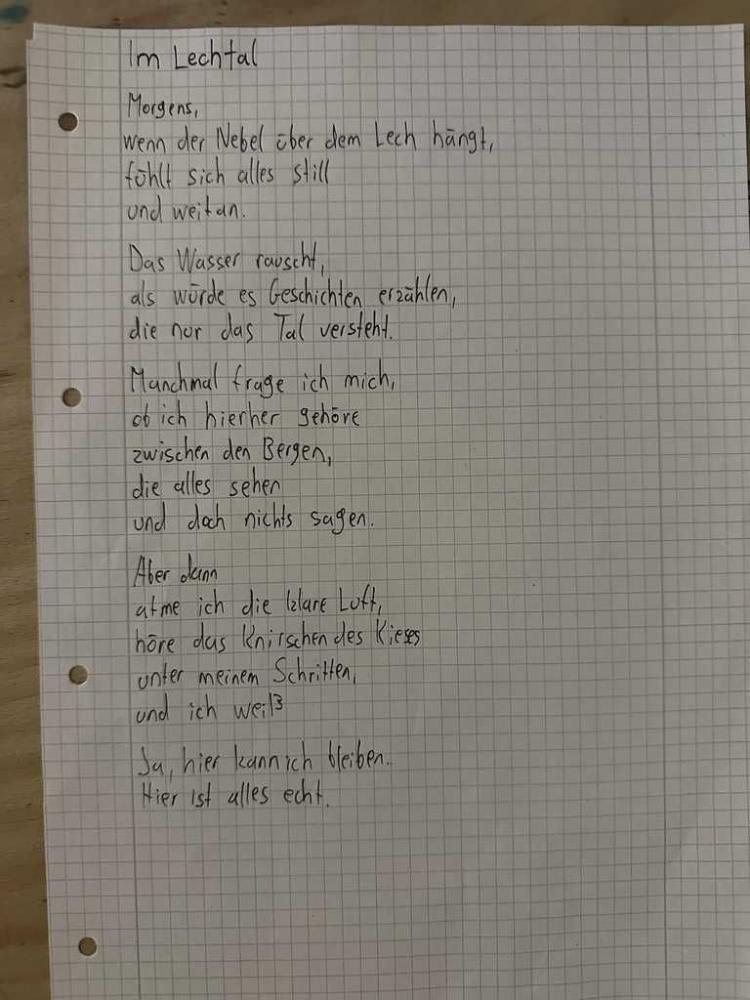 Im Lechtal
Morgens,
wenn der Nebel über dem Lech hängt,
fühlt sich alles still
und weit an.
Das Wasser rauscht,
als würde es Geschichten erzählen,
die nur das Tal versteht.
Manchmal frage ich mich,
ob ich hierher gehöre
zwischen den Bergen,
die alles sehen
und doch nichts sagen.
Aber dann
atme ich die klare Luft,
höre das Knirschen des Kieses
unter meinem Schritten,
und ich weiß
Ja, hier kann ich bleiben.
Hier ist alles echt.